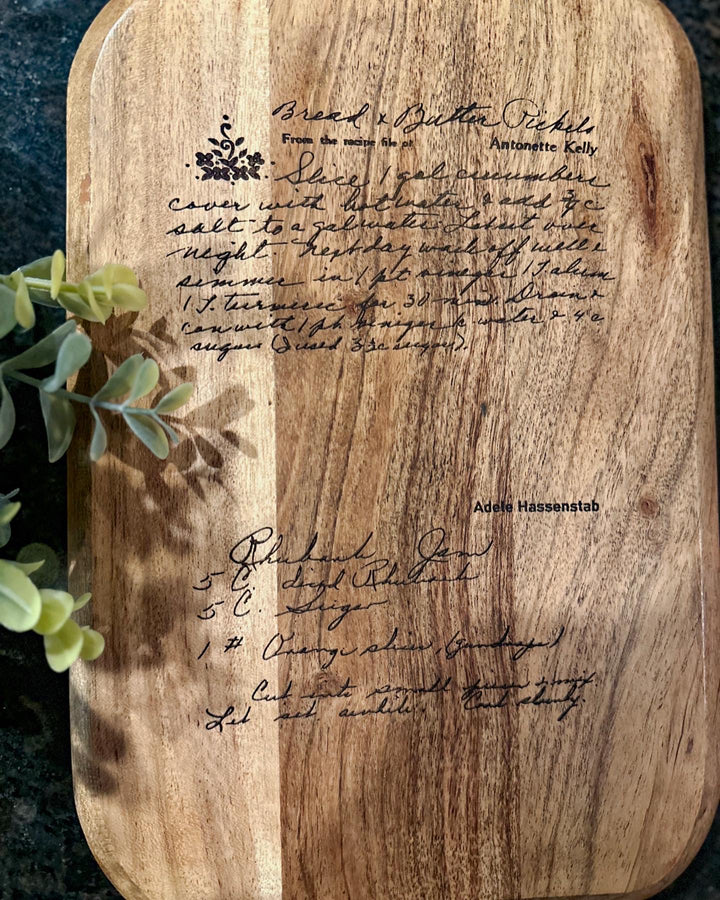 Bread & Butter Pickels
From the recipe file of Antonette Kelly
Slice 1 gal cucumbers
cover with hot water & add 3/4 c
salt to a gal water. Let set over
night. Next day wash off well &
simmer in 1 pt vinegar 1 T alum
1 T. turmeric for 30 min. Drain &
can with 1 pt. vinegar & water & 4 c
sugar (I used 3 1/2 c sugar).
Adele Hassenstab
Rhubarb Jam
5 C. diced Rhubarb
5 C. Sugar
1 # Orange slices (gumdrops)
Cut into small pieces & mix.
Let set awhile. Cook slowly.